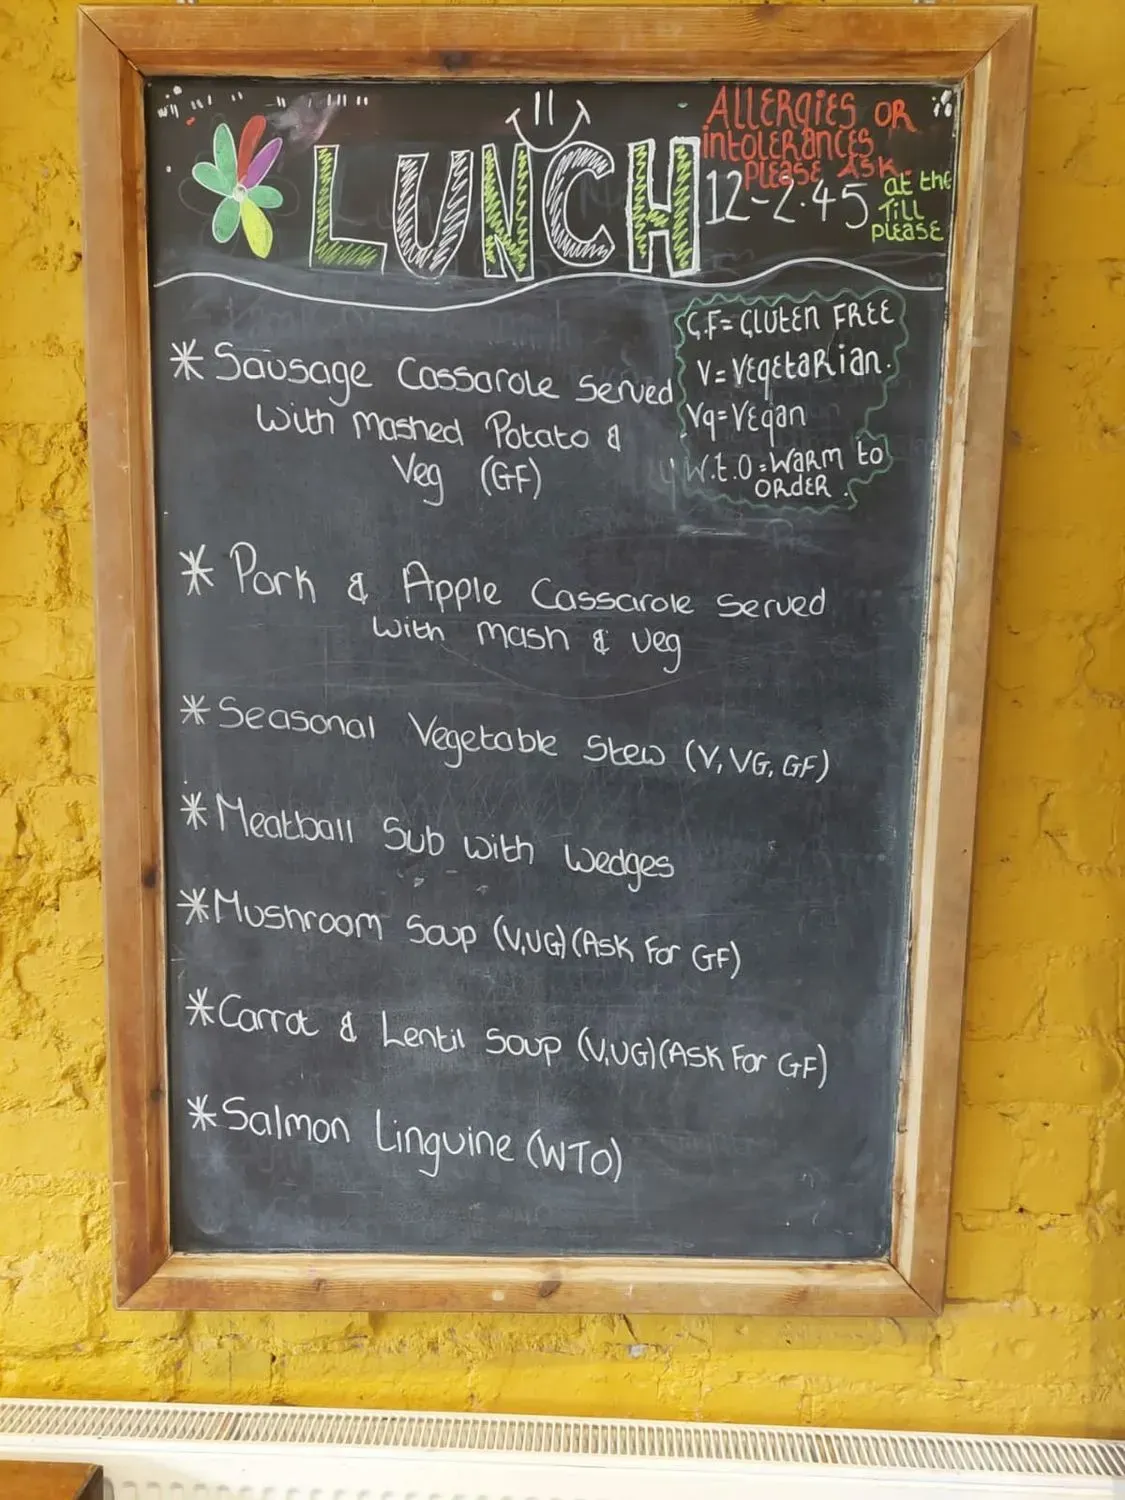 LUNCH
ALLERGIES OR
intOLERANCES
PLEASE ASK.
12-2.45
at the
Till
PLEASE
G.F= GLUTEN FREE
V=VEgEtaRian.
Vg=VEgan
W.t.O=WARM to
ORdER.
* Sausage Cassarole Served
With Mashed Potato &
Veg (GF)
* Pork & Apple Cassarole Served
With Mash & Veg
* Seasonal Vegetable Stew (V, VG, GF)
* Meatball Sub with Wedges
* Mushroom Soup (V,VG)(Ask For GF)
* Carrot & Lentil Soup (V,VG)(Ask For GF)
* Salmon Linguine (WTO)